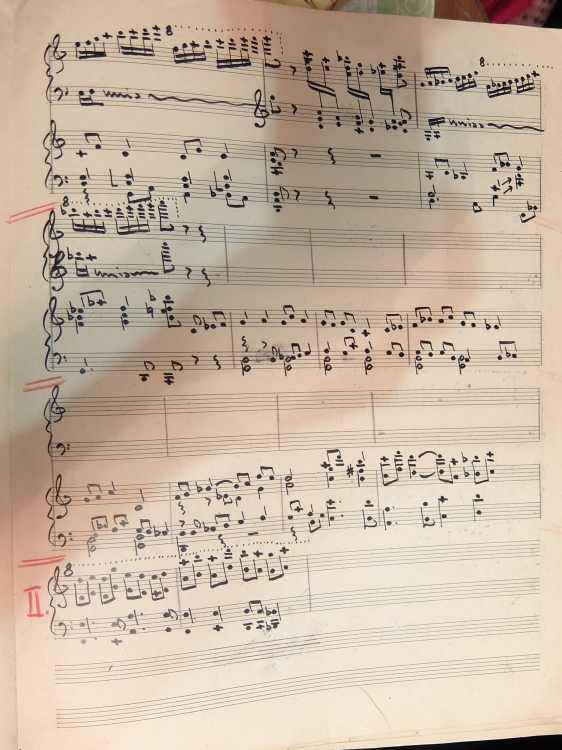 8
8
unis
unis
8
unis
8
II.